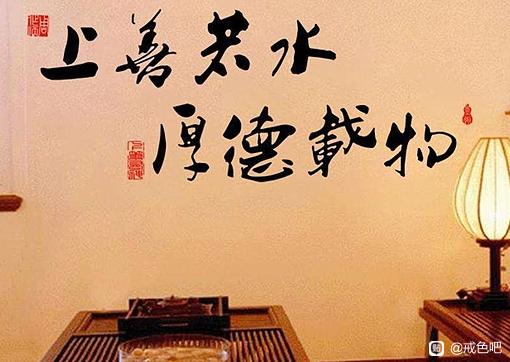 上善若水
厚德載物
貼 @戒色吧